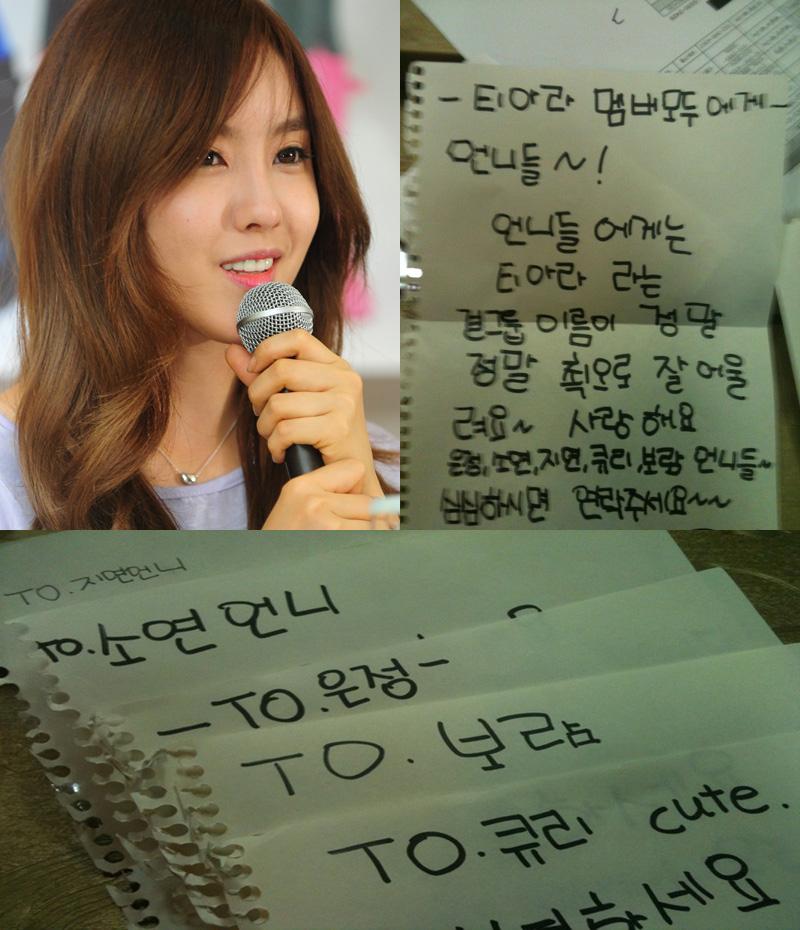 - 티아라 멤버모두에게 -
언니들 ~!
언니들 에게는
티아라 라는
걸그룹 이름이 정말
정말 촥으로 잘어울
려요~ 사랑해요
은정,소연,지연,큐리,보람 언니들~
심심하시면 연락주세요~~
TO.지연언니
소연언니
-TO.은정-
TO.보람
TO.큐리 cute.
하세요